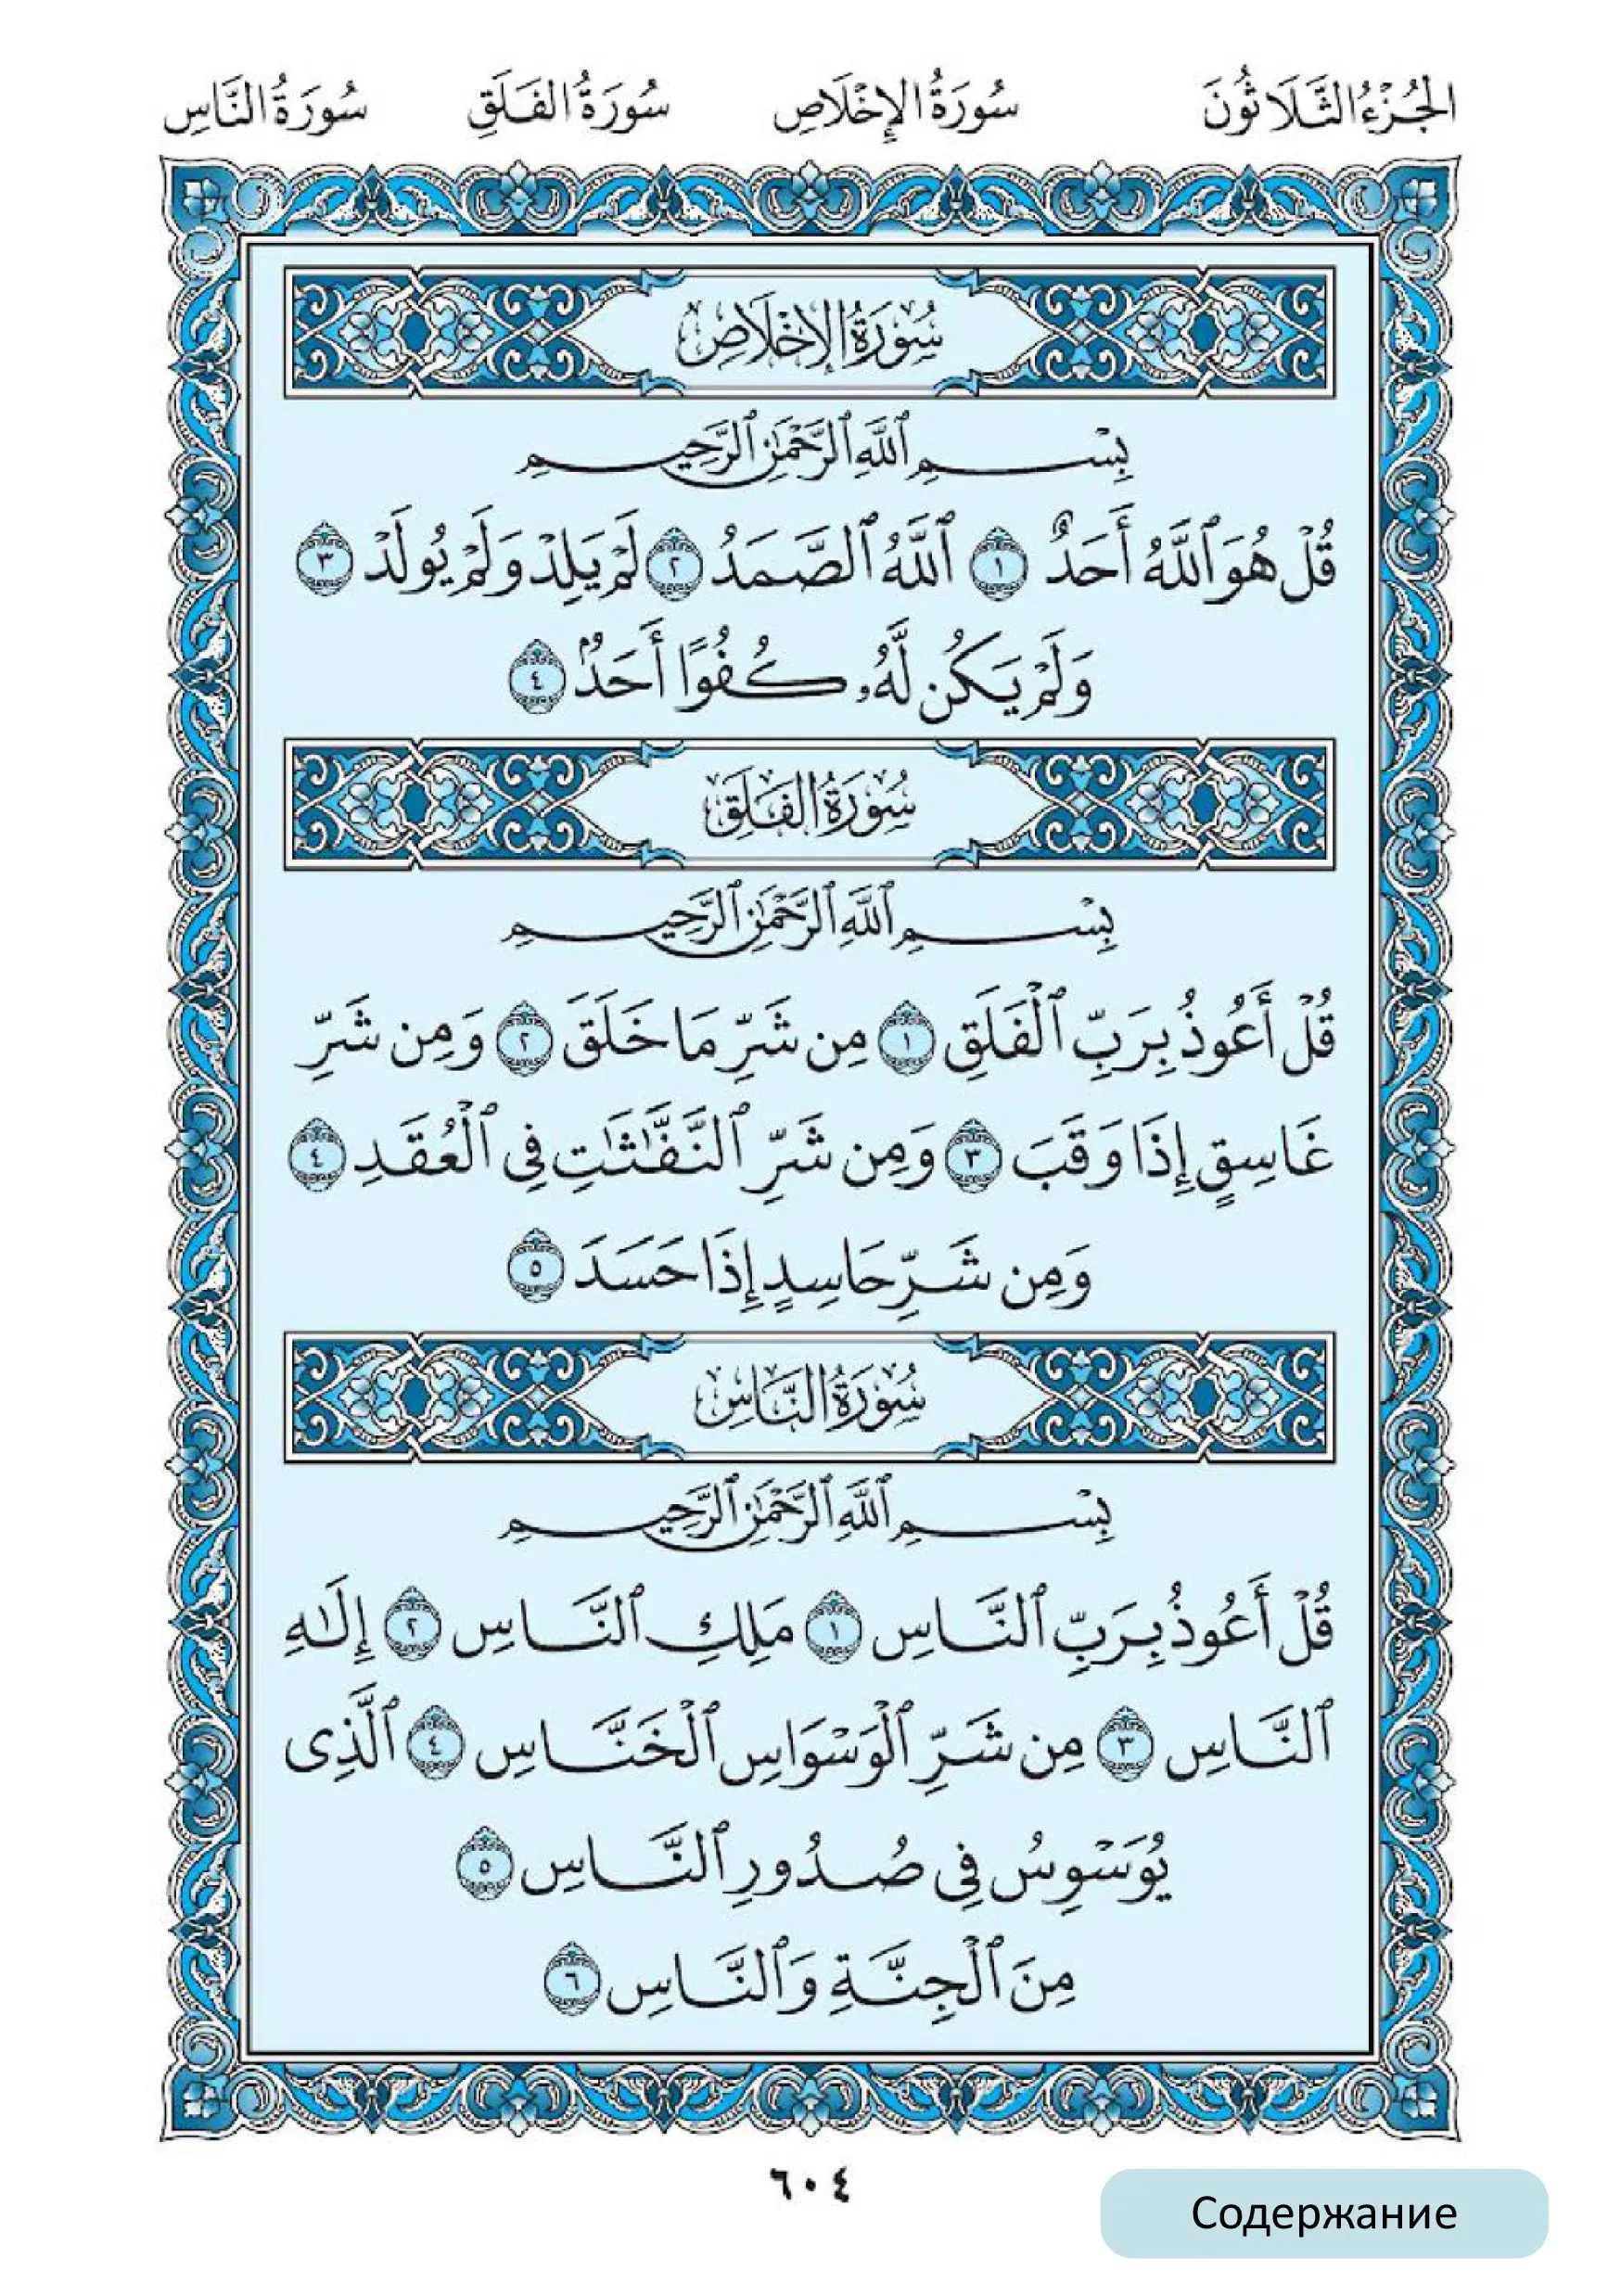 الجُزْءُ الثَّلَاثُونَ سُورَةُ الإِخْلَاصِ سُورَةُ الفَلَقِ سُورَةُ النَّاسِ
سُورَةُ الإِخْلَاصِ
بِسْمِ ٱللَّهِ ٱلرَّحْمَٰنِ ٱلرَّحِيمِ
قُلْ هُوَ ٱللَّهُ أَحَدٌ ١ ٱللَّهُ ٱلصَّمَدُ ٢ لَمْ يَلِدْ وَلَمْ يُولَدْ ٣
وَلَمْ يَكُن لَّهُۥ كُفُوًا أَحَدٌۢ ٤
سُورَةُ الفَلَقِ
بِسْمِ ٱللَّهِ ٱلرَّحْمَٰنِ ٱلرَّحِيمِ
قُلْ أَعُوذُ بِرَبِّ ٱلْفَلَقِ ١ مِن شَرِّ مَا خَلَقَ ٢ وَمِن شَرِّ
غَاسِقٍ إِذَا وَقَبَ ٣ وَمِن شَرِّ ٱلنَّفَّٰثَٰتِ فِى ٱلْعُقَدِ ٤
وَمِن شَرِّ حَاسِدٍ إِذَا حَسَدَ ٥
سُورَةُ النَّاسِ
بِسْمِ ٱللَّهِ ٱلرَّحْمَٰنِ ٱلرَّحِيمِ
قُلْ أَعُوذُ بِرَبِّ ٱلنَّاسِ ١ مَلِكِ ٱلنَّاسِ ٢ إِلَٰهِ
ٱلنَّاسِ ٣ مِن شَرِّ ٱلْوَسْوَاسِ ٱلْخَنَّاسِ ٤ ٱلَّذِى
يُوَسْوِسُ فِى صُدُورِ ٱلنَّاسِ ٥
مِنَ ٱلْجِنَّةِ وَٱلنَّاسِ ٦
٦٠٤
Содержание